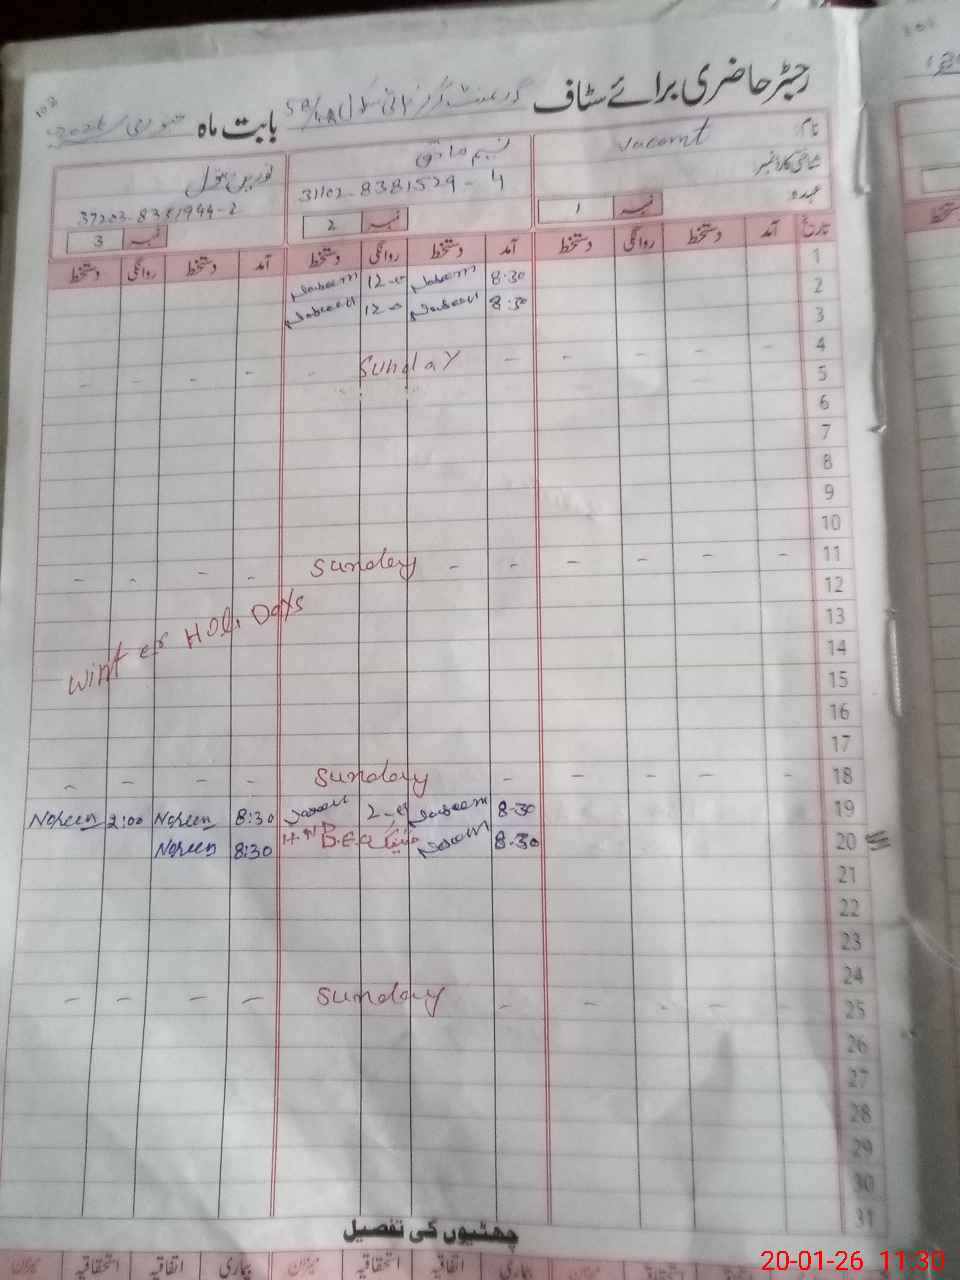 رجسٹر حاضری برائے سٹاف گورنمنٹ گرلز ہائی سکول بابت ماہ جنوری 2026
نام vacant
شناختی کارڈ نمبر
عہدہ
نمبر 1
31102-8381529-4
نمبر 2
نورین بتول
37203-8351944-2
نمبر 3
تاریخ آمد دستخط روانگی دستخط آمد دستخط روانگی دستخط آمد دستخط روانگی دستخط
1
2 8-30 Naseem 12-00 Naseem
3 8-30 Naseem 12-00 Naseem
4 - - - - - Sunday - - - - -
5
6
7
8
9
10
11 - - - - - - Sunday - - - -
12
13 Winter Holi Days
14
15
16
17
18 - - - - - Sunday - - - -
19 8-30 Naseem 2-00 Naseem 8:30 Noreen 2:00 Noreen
20 8-30 Naseem D.E.O 8:30 Noreen
21
22
23
24
25 - - - - - Sunday - - - -
26
27
28
29
30
31
چھٹیوں کی تفصیل
بیماری اتفاقیہ استحقاقیہ میزان بیماری اتفاقیہ استحقاقیہ میزان
20-01-26 11:30